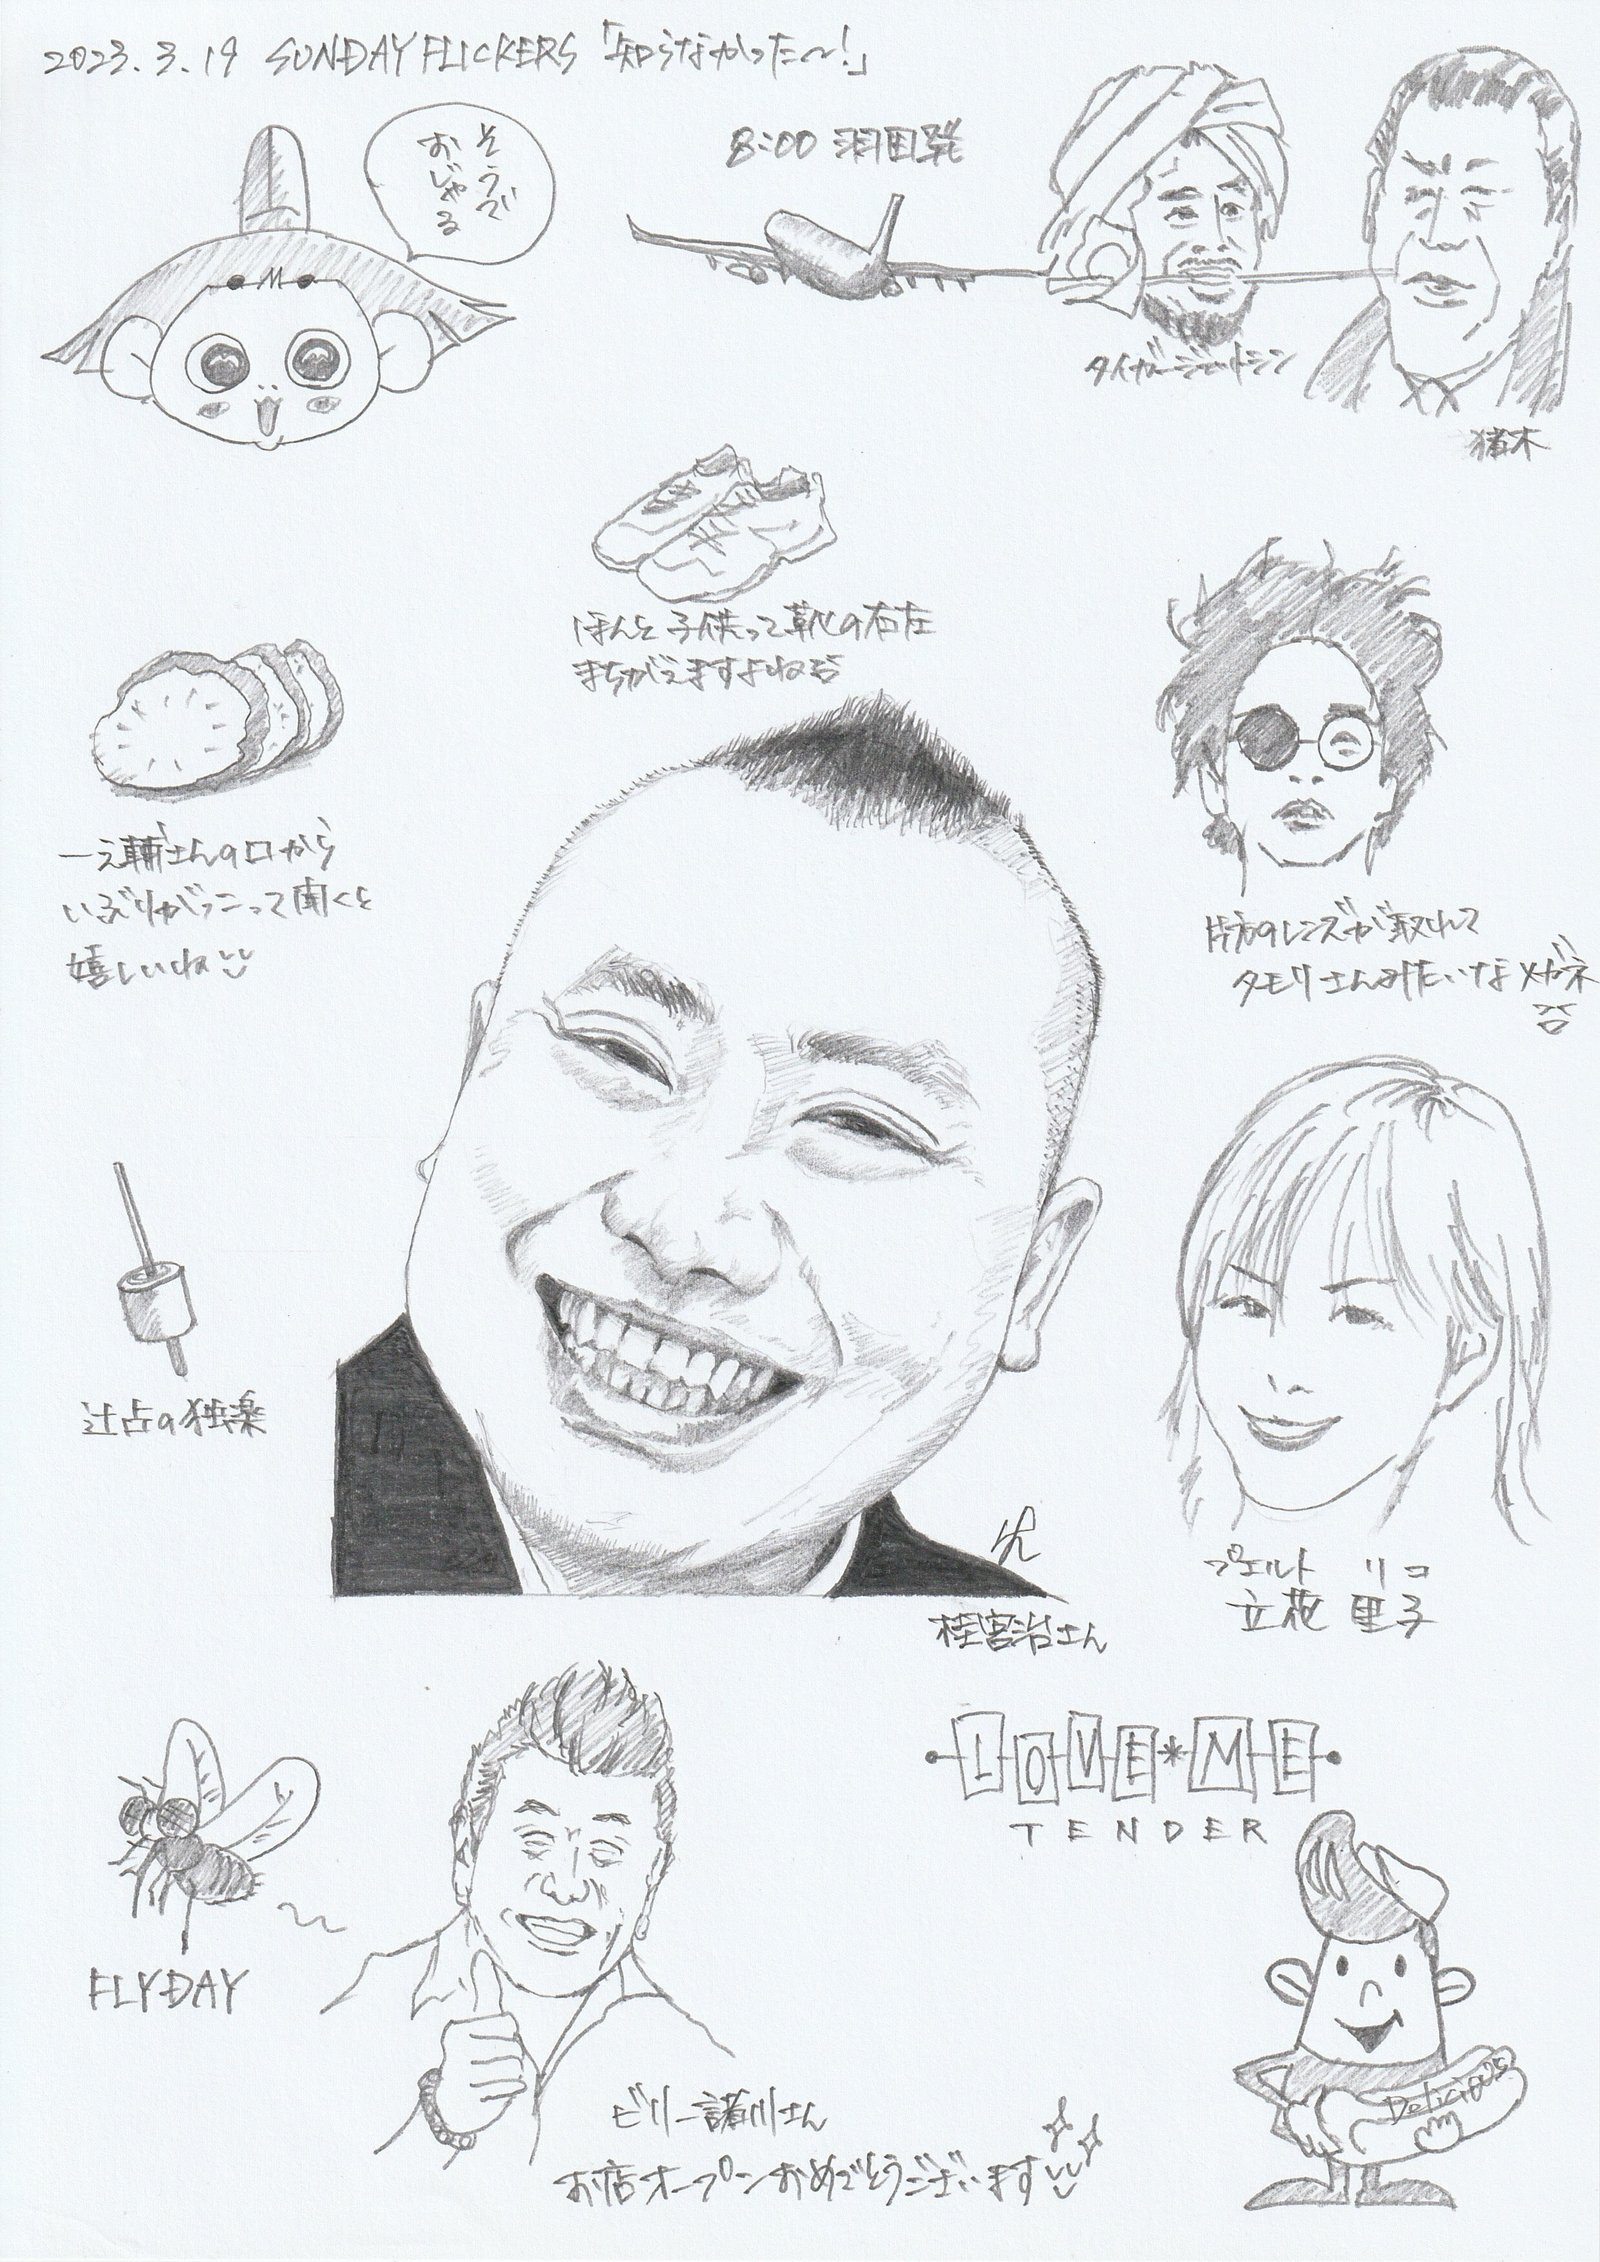 2023.3.19 SUNDAY FLICKERS「知らなかった〜!」
そうで
おじゃる
8:00 羽田発
タイガージェットシン
猪木
ほんと子供って靴の右左
まちがえますよね
一之輔さんの口から
いぶりがっこって聞くと
嬉しいね
片方のレンズが取れて
タモリさんみたいなメガネ
辻占の独楽
プエルト リコ
立花 里子
桂宮治さん
LOVE*ME
TENDER
FLYDAY
Delicious
ビリー諸川さん
お店オープンおめでとうございます